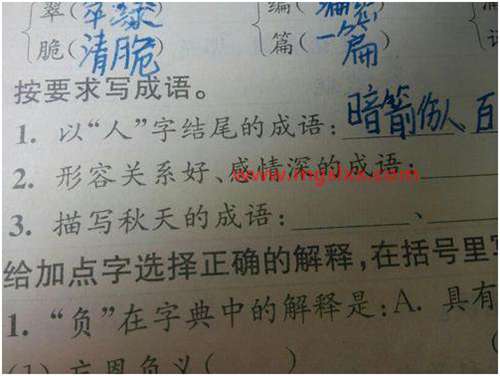 翠(翠绿) 编(
脆(清脆) 篇(一篇)
按要求写成语。
1. 以“人”字结尾的成语：暗箭伤人 百
2. 形容关系好、感情深的成语：
3. 描写秋天的成语：、
给加点字选择正确的解释，在括号里写
1. “负”在字典中的解释是：A. 具有
(1) 忘恩负义( )